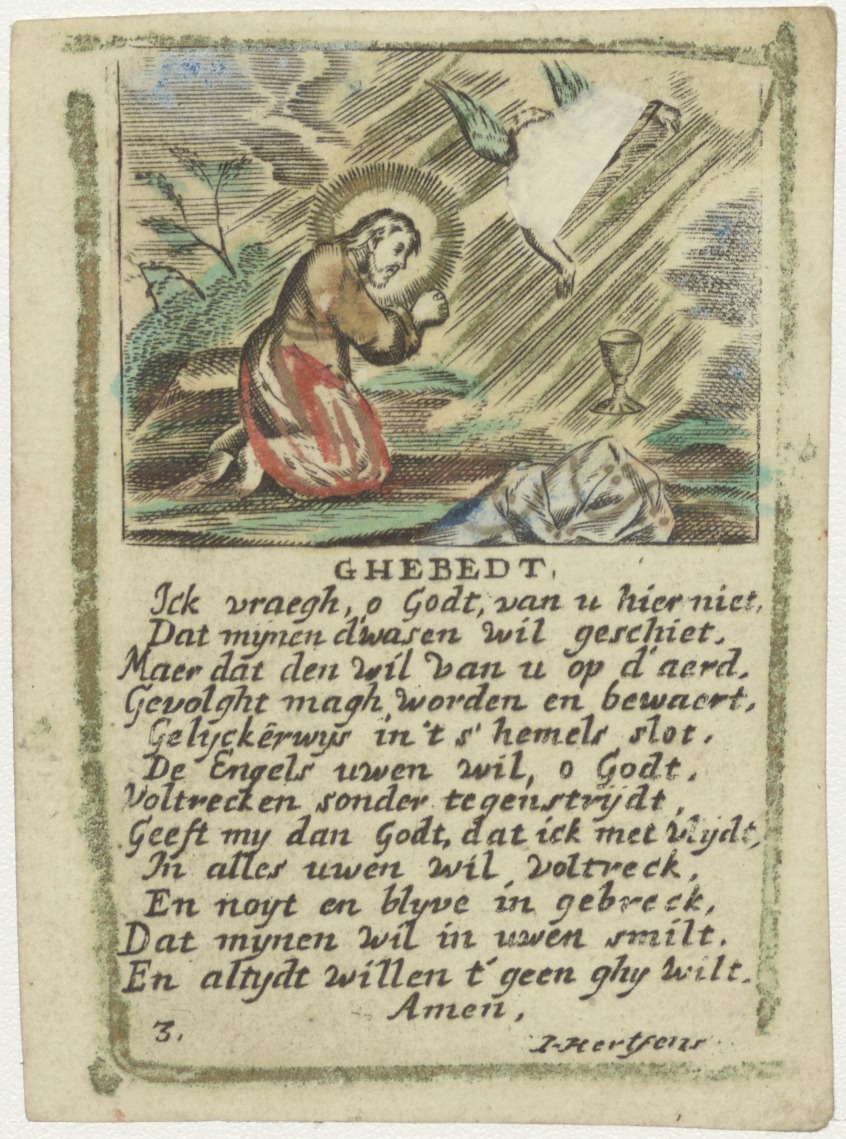 GHEBEDT,
Ick vraegh, o Godt, van u hier niet,
Dat mynen dwasen wil geschiet.
Maer dat den wil van u op d'aerd.
Gevolght magh worden en bewaert,
Gelyckêrwys in't s' hemels slot.
De Engels uwen wil, o Godt.
Voltrecken sonder tegenstrydt,
Geeft my dan Godt, dat ick met vlydt,
In alles uwen wil voltreck,
En noyt en blyve in gebreck,
Dat mynen wil in uwen smilt.
En altydt willen t'geen ghy wilt.
Amen,
3.
I-Hertsens